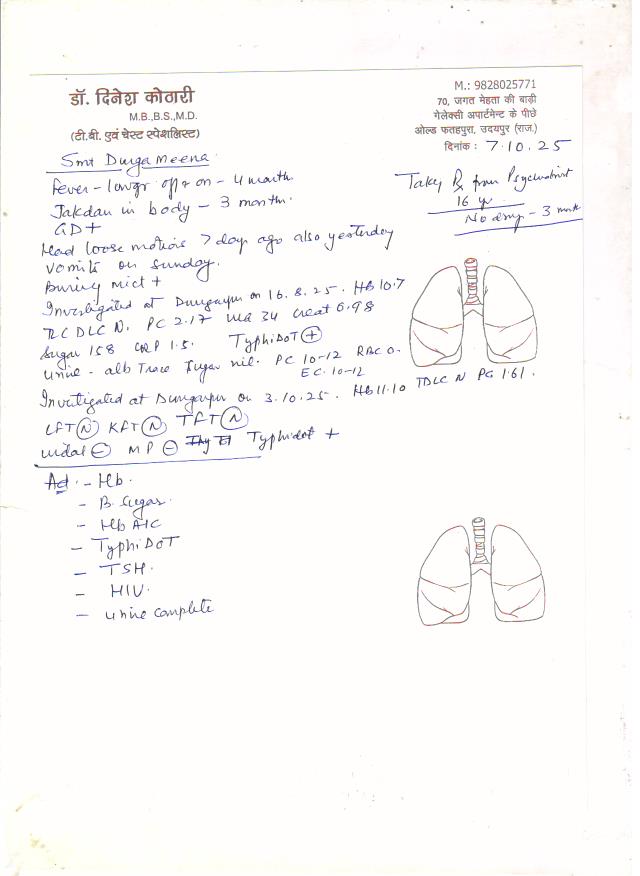 डॉ. दिनेश कोठारी
M.B.,B.S.,M.D.
(टी.बी. एवं चेस्ट स्पेशलिस्ट)
M.: 9828025771
70, जगत मेहता की बाड़ी
गेलेक्सी अपार्टमेन्ट के पीछे
ओल्ड फतहपुरा, उदयपुर (राज.)
दिनांक : 7.10.25
Smt Durga Meena
Fever - on - 4 month
Jakdan in body - 3 month.
GD +
Taking Rx from Psychiatrist
16 yr
No drug - 3 month
Had loose motions 7 days ago also yesterday
Vomits on Sunday.
Burning mict +
Investigated at Dungarpur on 16.8.25. Hb 10.7
TLC DLC N. PC 2.17 34 Creat 0.98
Sugar 158 CRP 1.5. TyphiDoT +
Urine - alb Trace Sugar nil. PC 10-12 RBC 0.
EC. 10-12
Investigated at Dungarpur on 3.10.25. Hb 11.10 TDLC N PC 1.61.
LFT N KFT N TFT N
Widal - MP - Typhidot +
Ad. - Hb.
- B. Sugar.
- Hb A1C
- TyphiDoT
- TSH.
- HIV.
- Urine complete